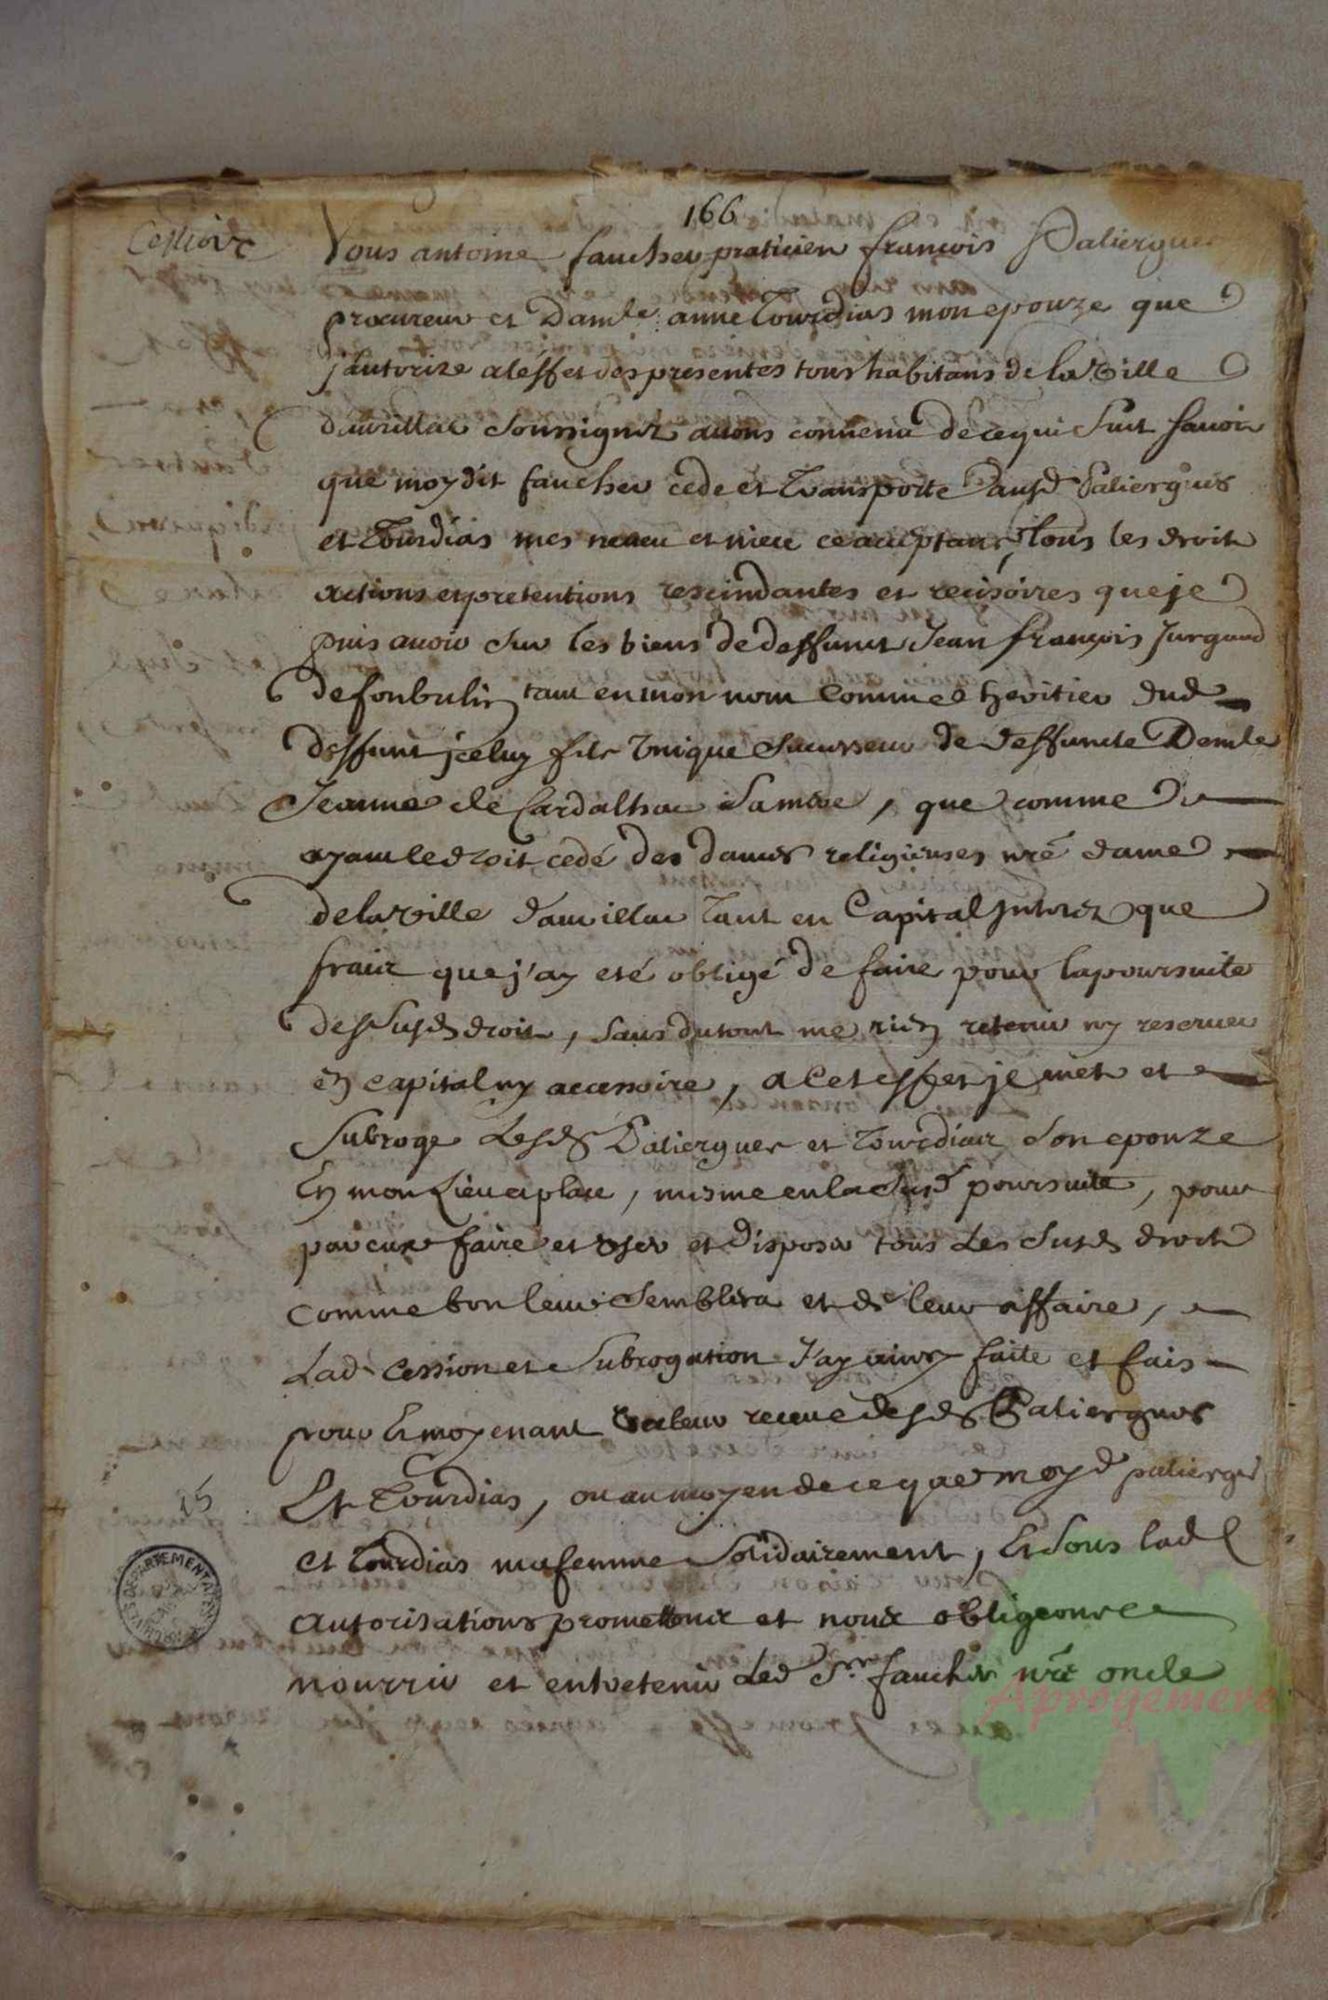 166
Cession
Nous antoine faucher praticien françois Paliergues
procureur et Damle anne Tourdias mon epouze que
j'autorize a leffet des presentes tous habitans de la Ville
d'aurillac soussignez avons convenu de ce qui suit savoir
que moy dit faucher cede et transporte ausd Paliergues
et Tourdias mes neveu et niece ce acceptans, tous les droits
actions et pretentions rescindantes et recisoires que je
puis avoir sur les biens de deffunt Jean françois Jurquand
de fonbulin tant en mon nom comme heritier dud
deffunt iceluy fils Unique successeur de deffuncte Demle
Jeanne de Cardalhac sa mere, que comme
ayant le droit cedé des dames religieuses nre dame
de la Ville d'aurillac tant en Capital Interez que
fraix que j'ay eté obligé de faire pour la poursuite
des susds droits, sans du tout me rien retenir ny reserver
en capital ny accessoire, a cet effet je mets et
subroge lesds Paliergues et Tourdias son epouze
En mon Lieu et place, mesme en la susd poursuite, pour
par eux faire et user et disposer tous les susds droits
comme bon leur semblera et de leur affaire,
Lad cession et subrogation J'ay ainsy faite et fais
pour Et moyenant valeur receue desds Paliergues
Et Tourdias, ou au moyen de ce que moy d paliergues
et Tourdias ma femme solidairement, Et sous lad
autorisations promettons et nous obligeons
nourrir et entretenir led Sr faucher nre oncle
25
ARCHIVES DEPARTEMENTALES
Aprogemere